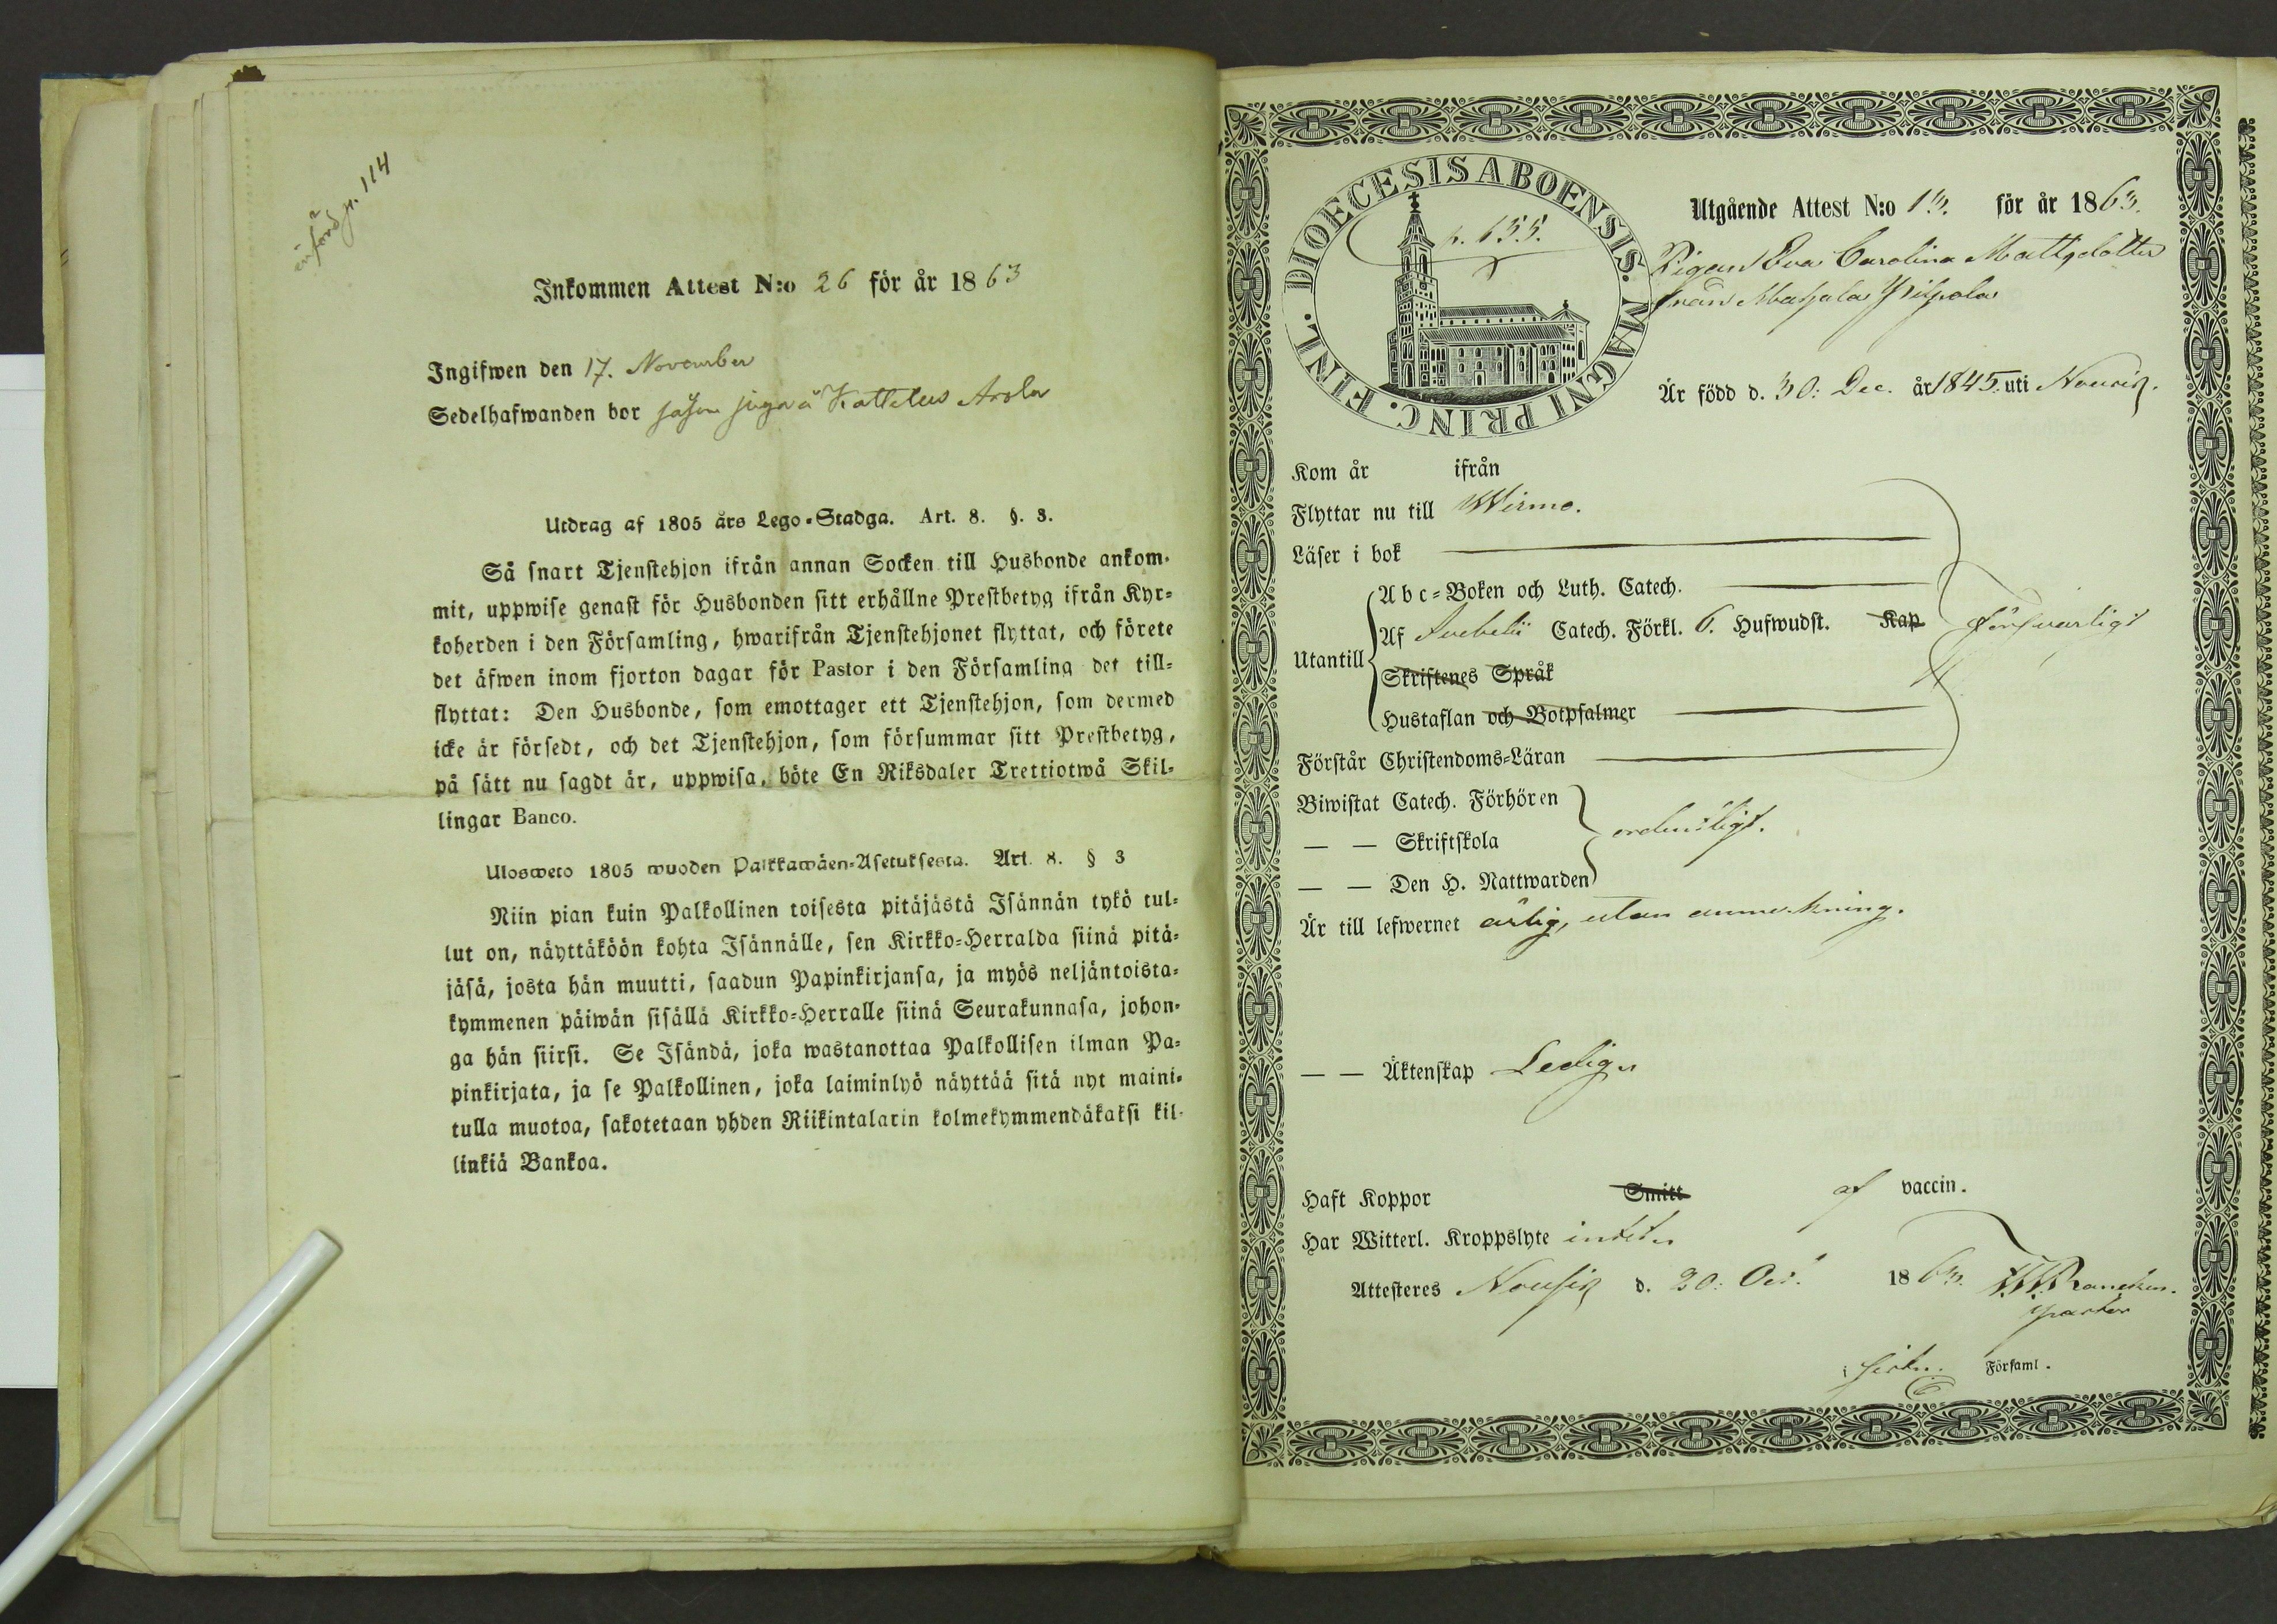 införd p. 114
Inkommen Attest N:o 26 för år 1863
Ingifwen den 17. November
Sedelhafwanden bor såsom piga å Kattelus Arola
Utdrag af 1805 års Lego-Stadga. Art. 8. §. 3.
Så snart Tjenstehjon ifrån annan Socken till Husbonde ankom-
mit, uppwise genast för Husbonden sitt erhållne Prestbetyg ifrån Kyr-
koherden i den Församling, hwarifrån Tjenstehjonet flyttat, och förete
det äfwen inom fjorton dagar för Pastor i den Församling det till-
flyttat: Den Husbonde, som emottager ett Tjenstehjon, som dermed
icke är försedt, och det Tjenstehjon, som försummar sitt Prestbetyg,
på sätt nu sagdt är, uppwisa, böte En Riksdaler Trettiotwå Skil-
lingar Banco.
Ulosweto 1805 wuoden Palkkawäen-Asetuksesta. Art. 8. § 3
Niin pian kuin Palkollinen toisesta pitäjästä Isännän tykö tul-
lut on, näyttäköön kohta Isännälle, sen Kirkko-Herralda siinä pitä-
jäsä, josta hän muutti, saadun Papinkirjansa, ja myös neljäntoista-
kymmenen päiwän sisällä Kirkko-Herralle siinä Seurakunnasa, johon-
ga hän siirsi. Se Isändä, joka wastanottaa Palkollisen ilman Pa-
pinkirjata, ja se Palkollinen, joka laiminlyö näyttää sitä nyt maini-
tulla muotoa, sakotetaan yhden Riikintalarin kolmekymmendäkaksi kil-
linkiä Bankoa.
DIOECESIS ABOENSIS. MAGNI PRINC. FINL.
p. 655.
Utgående Attest N:o 13. för år 1863.
Pigan Eva Carolina Mattsdotter
från
Är född d. 30: Dec. år 1845. uti Nousis.
Kom år ifrån
Flyttar nu till Wirmo.
Läser i bok
Abc-Boken och Luth. Catech.
Utantill Af Svebelii Catech. Förkl. 6. Hufwudst. Kap försvarligt
Skriftenes Språk
Hustaflan och Botpsalmer
Förstår Christendoms-Läran
Biwistat Catech. Förhören
— — Skriftskola ordentligt.
— — Den H. Nattwarden
Är till lefwernet ärlig, utan anmerkning.
— — Äktenskap Ledig
Haft Koppor Smitt af vaccin.
Har Witterl. Kroppslyte intet
Attesteres Nousis d. 20: Oct. 1863.
Pastor
i Församl.